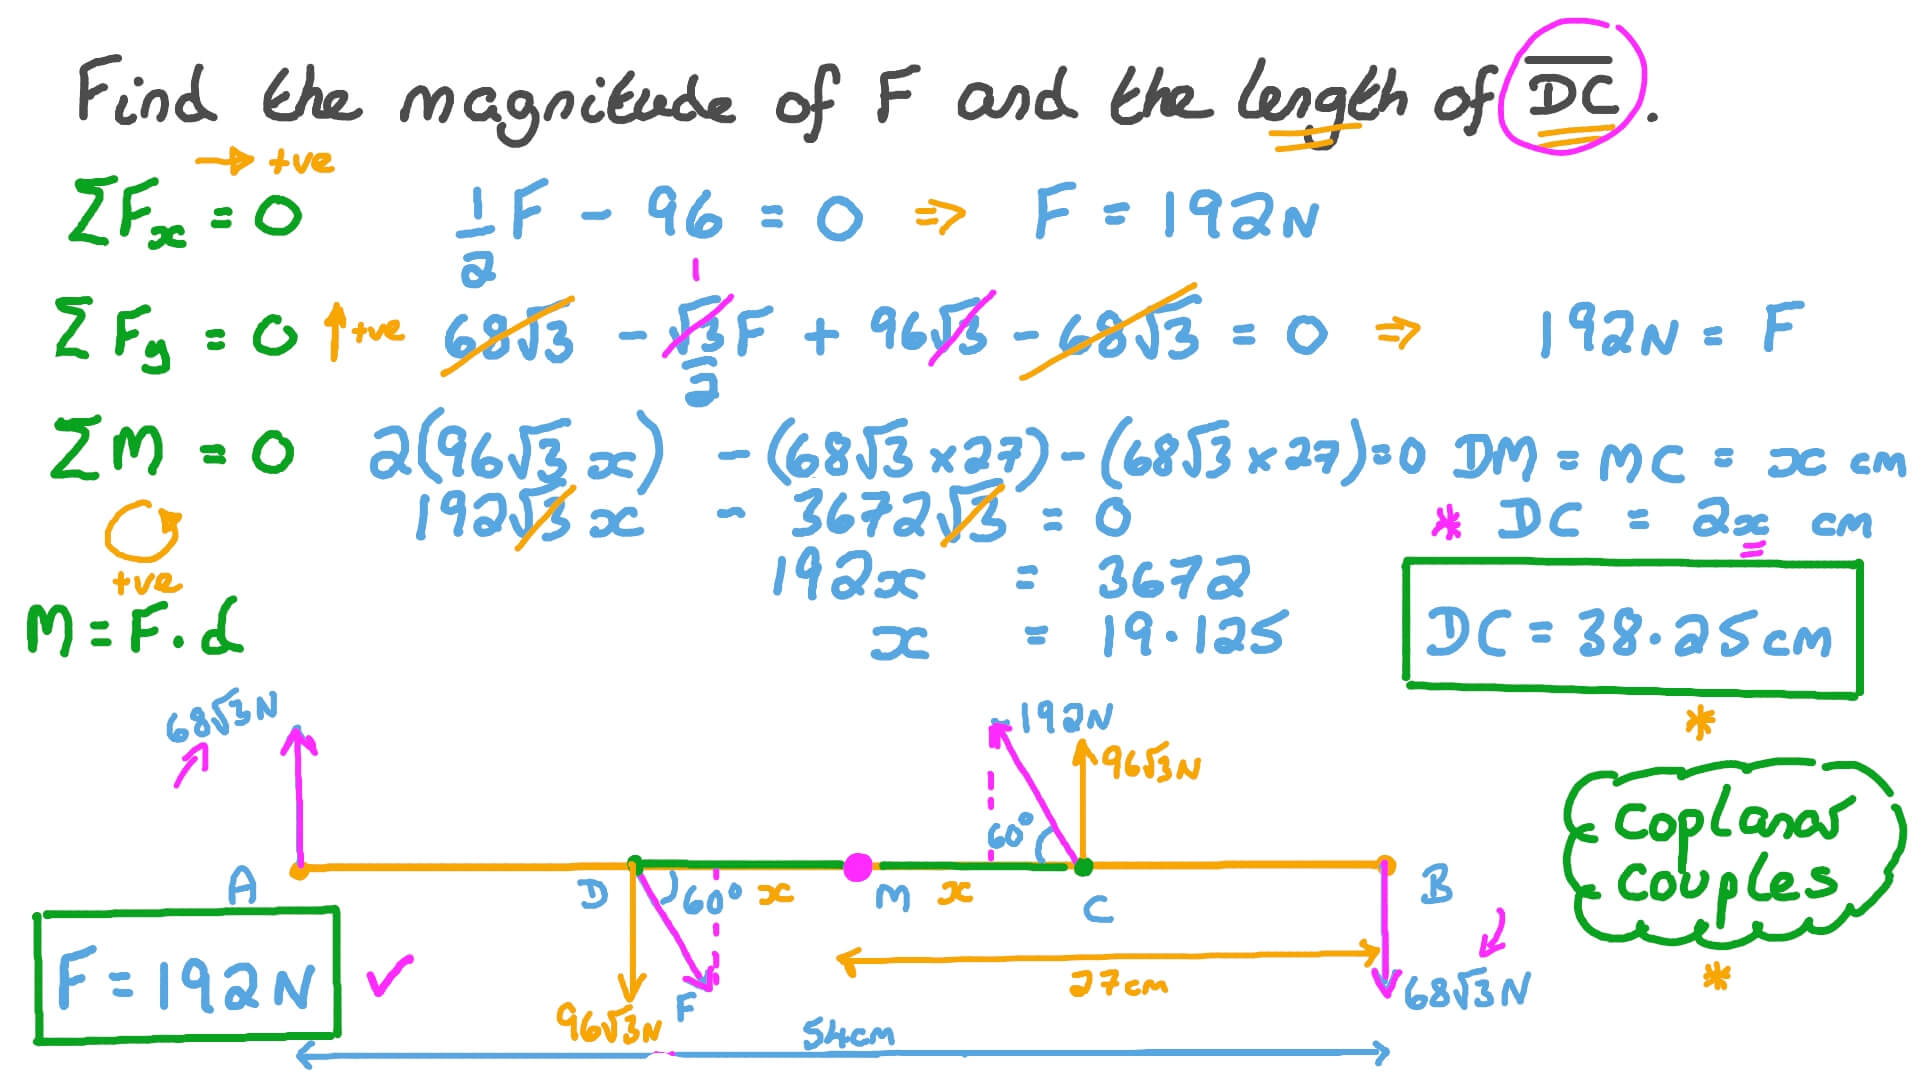 Find the magnitude of F and the length of DC.
→ +ve
ΣFx = 0 1/2 F - 96 = 0 ⇒ F = 192N
1
ΣFy = 0 ↑+ve 68√3 - √3/2 F + 96√3 - 68√3 = 0 ⇒ 192N = F
ΣM = 0 2(96√3 x) - (68√3 x 27) - (68√3 x 27) = 0 DM = MC = x cm
192√3 x - 3672√3 = 0 * DC = 2x cm
+ve 192x = 3672
M = F.d x = 19.125 DC = 38.25cm
*
68√3N 192N
96√3N
60°
coplanar
couples
*
A D 60° x M x C B
F = 192N
27cm
68√3N
96√3N F
54cm